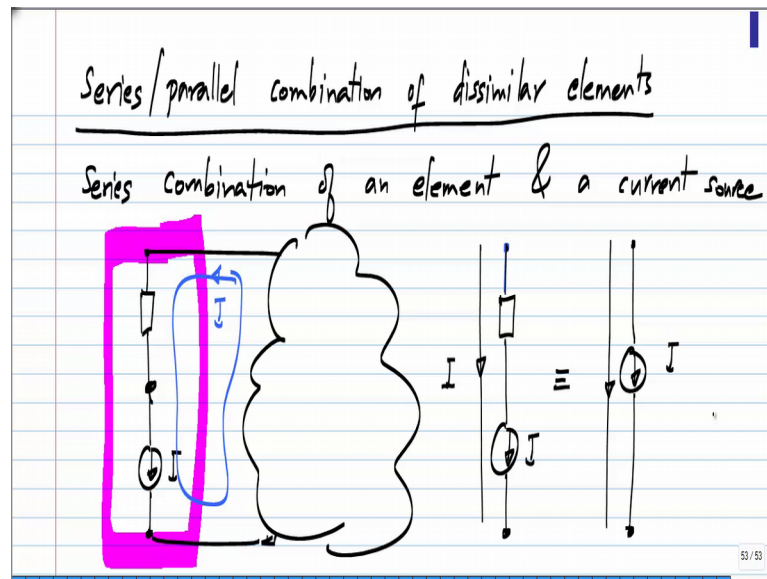 Series/parallel combination of dissimilar elements
Series combination of an element & a current source
I
I
I
I
≡
I
53 / 53